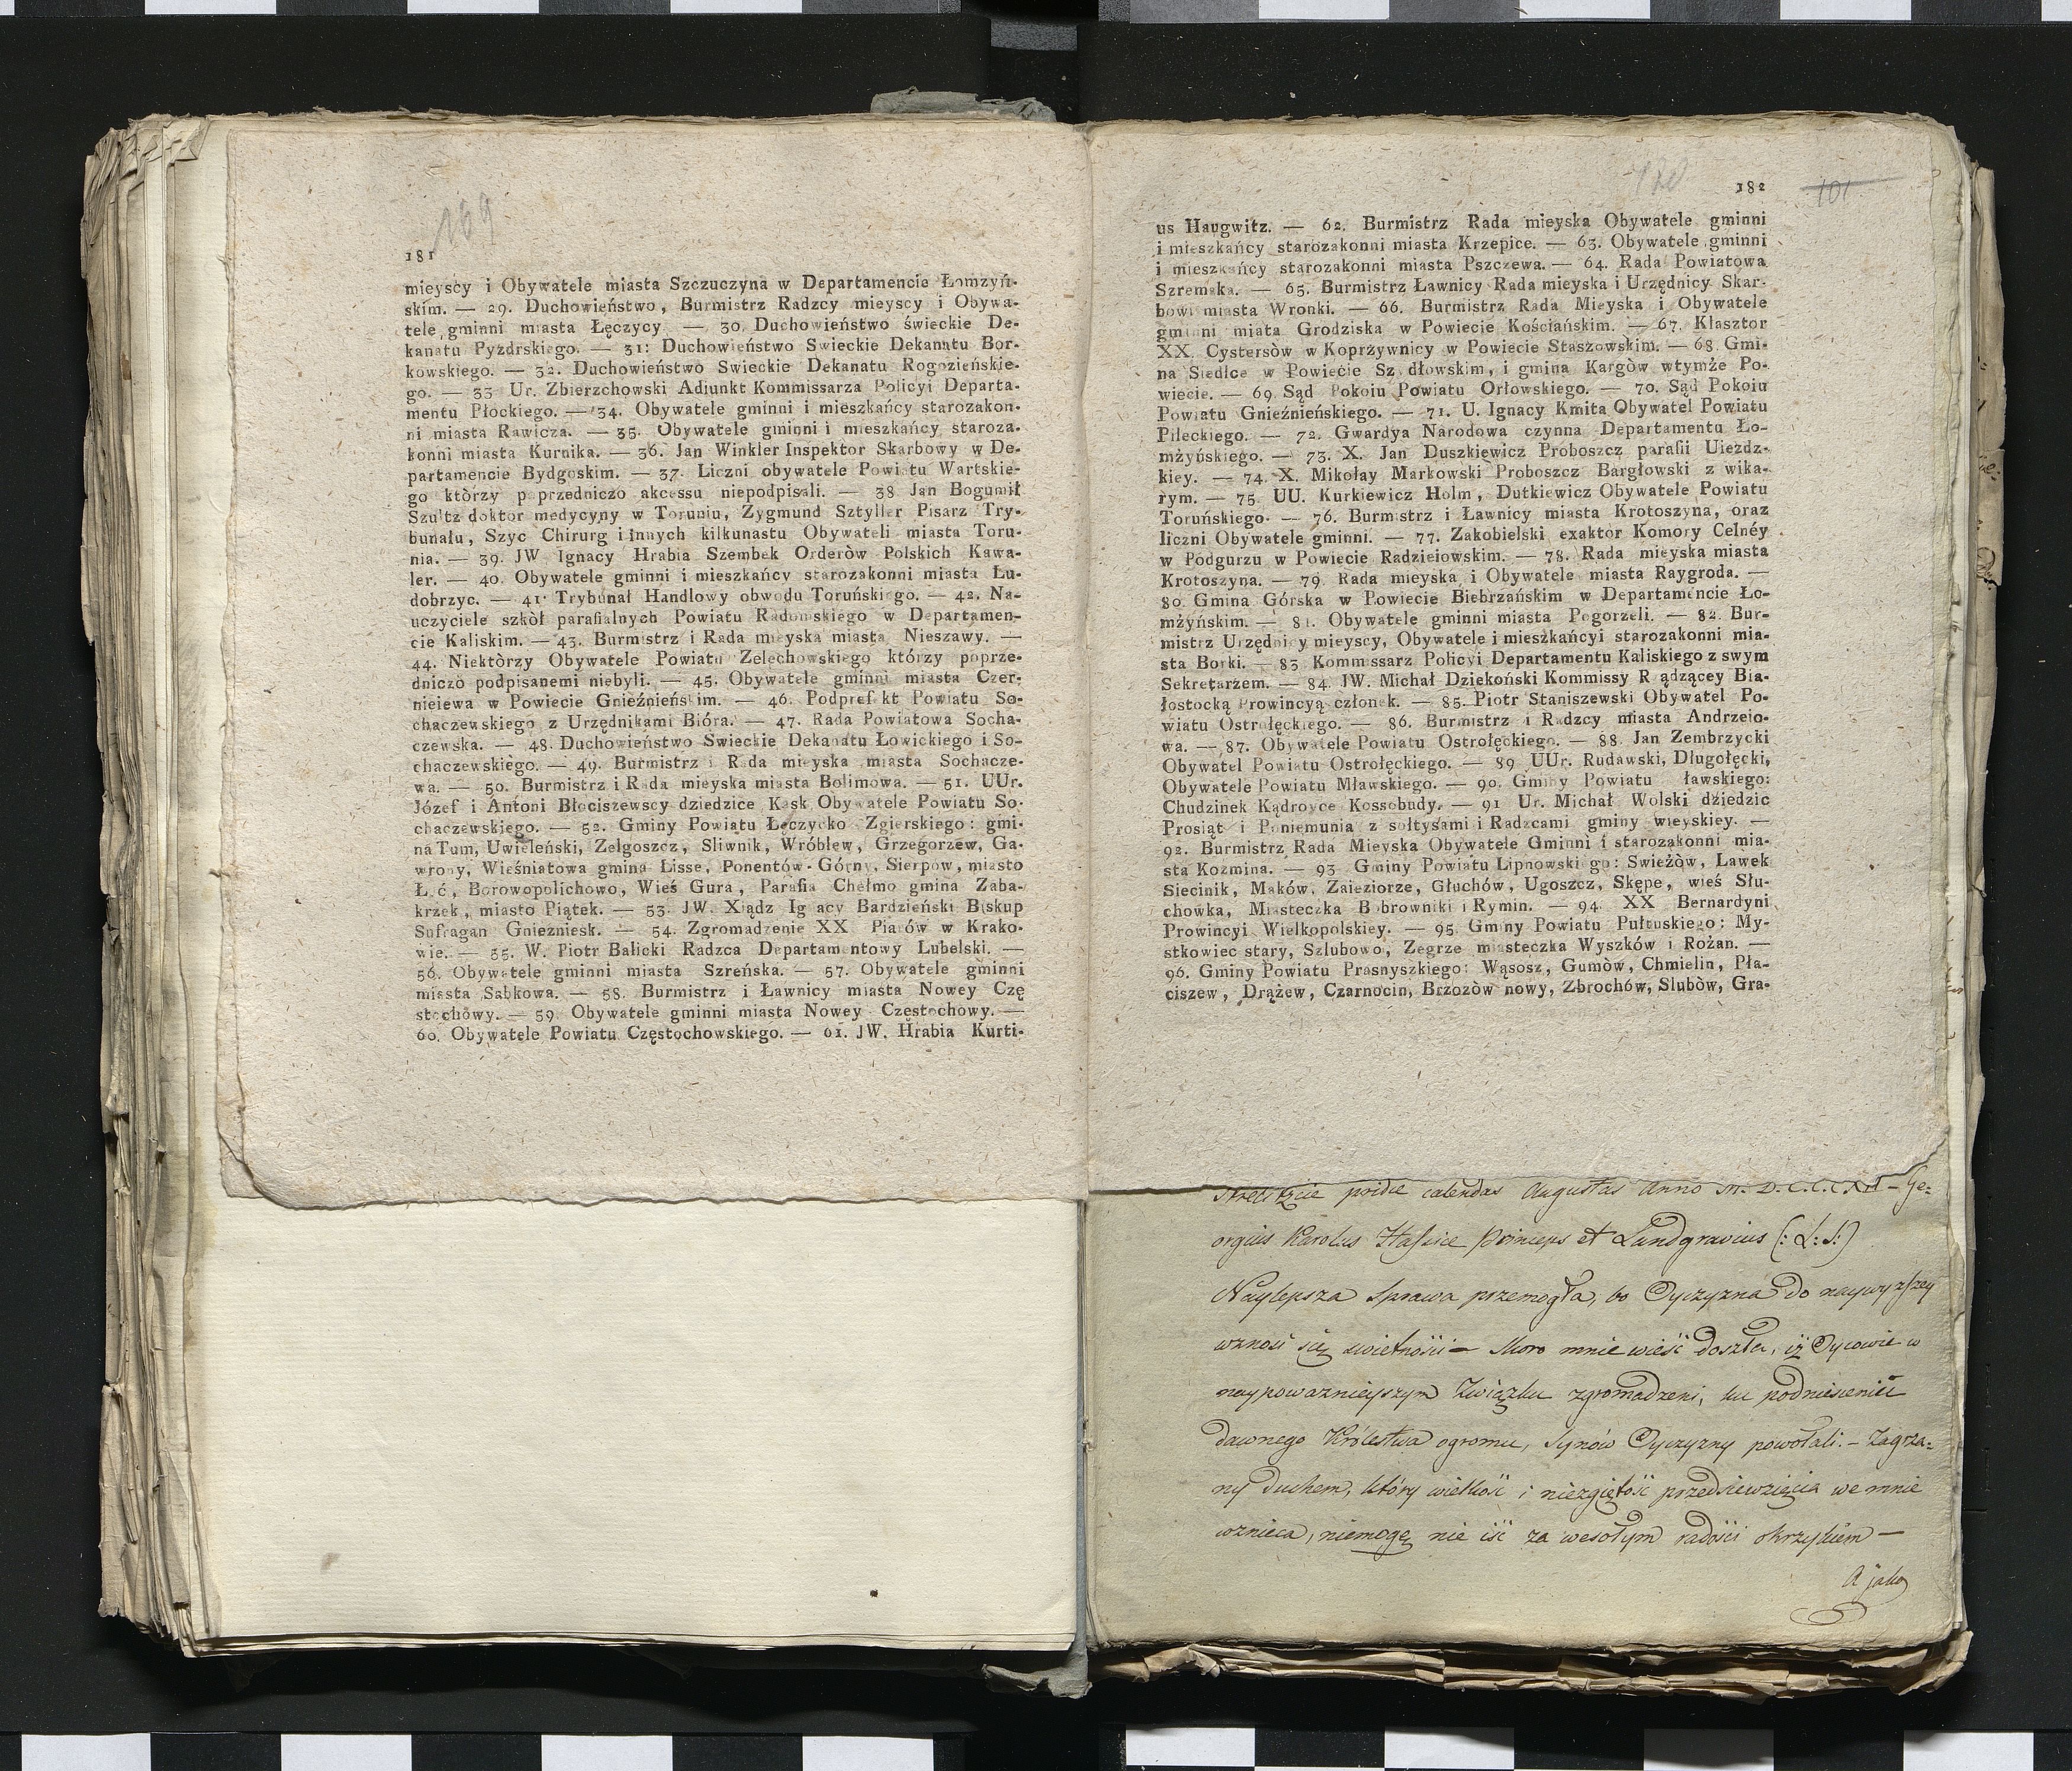 169
181
mieyscy i Obywatele miasta Szczuczyna w Departamencie Łomzyń-
skim. — 29. Duchowieństwo, Burmistrz Radzcy mieyscy i Obywa-
tele gminni miasta Łęczycy — 30. Duchowieństwo świeckie De-
kanatu Pyzdrskiego. — 31: Duchowieństwo Swieckie Dekanatu Bor-
kowskiego. — 32. Duchowieństwo Swieckie Dekanatu Rogozieńskie-
go. — 33 Ur. Zbierzchowski Adiunkt Kommissarza Policyi Departa-
mentu Płockiego. — 34. Obywatele gminni i mieszkańcy starozakon-
ni miasta Rawicza. — 35. Obywatele gminni i mieszkańcy staroza-
konni miasta Kurnika. — 36. Jan Winkler Inspektor Skarbowy w De-
partamencie Bydgoskim. — 37. Liczni obywatele Powiatu Wartskie-
go którzy p przedniczo akcessu niepodpisali. — 38 Jan Bogumił
Szultz doktor medycyny w Toruniu, Zygmund Sztyller Pisarz Try-
bunału, Szyc Chirurg i innych kilkunastu Obywateli miasta Toru-
nia. — 39. JW Ignacy Hrabia Szembek Orderòw Polskich Kawa-
ler. — 40. Obywatele gminni i mieszkańcy starozakonni miasta Lu-
dobrzyc. — 41 Trybunał Handlowy obwodu Toruńskiego. — 42. Na-
uczyciele szkòł parafialnych Powiatu Radomskiego w Departamen-
cie Kaliskim. — 43. Burmistrz i Rada mieyska miasta Nieszawy. —
44. Niektòrzy Obywatele Powiatu Zelechowskiego którzy poprze-
dniczo podpisanemi niebyli. — 45. Obywatele gminni miasta Czer-
nieiewa w Powiecie Gnieźnieńskim. — 46. Podpref kt Powiatu So-
chaczewskiego z Urzędnikami Bióra. — 47. Rada Powiatowa Socha-
czewska. — 48. Duchowieństwo Swieckie Dekanatu Łowickiego i So-
chaczewskiego. — 49. Burmistrz i Rada mieyska miasta Sochacze-
wa. — 50. Burmistrz i Rada mieyska miasta Bolimowa. — 51. UUr.
Józef i Antoni Błociszewscy dziedzice Kask Obywatele Powiatu So-
chaczewskiego. — 52. Gminy Powiatu Łęczycko Zgierskiego: gmi-
na Tum, Uwieleński, Zelgoszcz, Sliwnik, Wróblew, Grzegorzew, Ga-
wrony, Wieśniatowa gmina Lisse, Ponentów-Górny, Sierpow, miasto
Ł ć, Borowopolichowo, Wieś Gura, Parafia Chełmo gmina Zaba-
krzek, miasto Piątek. — 53. JW. Xiądz Ig acy Bardzieński Biskup
Sufragan Gniezniesk. — 54. Zgromadzenie XX Piarów w Krako-
wie. — 55. W. Piotr Balicki Radzca Departamentowy Lubelski. —
56. Obywatele gminni miasta Szreńska. — 57. Obywatele gminni
miasta Sabkowa. — 58. Burmistrz i Ławnicy miasta Nowey Czę
stochowy. — 59. Obywatele gminni miasta Nowey Częstochowy. —
60. Obywatele Powiatu Częstochowskiego. — 61. JW. Hrabia Kurti-
182
101
us Haugwitz. — 62. Burmistrz Rada mieyska Obywatele gminni
i mieszkańcy starozakonni miasta Krzepice. — 63. Obywatele gminni
i mieszkańcy starozakonni miasta Pszczewa. — 64. Rada Powiatowa
Szremska. — 65. Burmistrz Ławnicy Rada mieyska i Urzędnicy Skar-
bowi miasta Wronki. — 66. Burmistrz Rada Mieyska i Obywatele
gminni miata Grodziska w Powiecie Kościańskim. — 67. Klasztor
XX. Cystersòw w Koprżywnicy w Powiecie Staszowskim. — 68. Gmi-
na Siedlce w Powiecie Sz dłowskim, i gmina Kargòw wtymże Po-
wiecie. — 69 Sąd Pokoiu Powiatu Orłowskiego. — 70. Sąd Pokoiu
Powiatu Gnieźnieńskiego. — 71. U. Ignacy Kmita Obywatel Powiatu
Pileckiego. — 72. Gwardya Narodowa czynna Departamentu Ło-
mżyńskiego. — 73. X. Jan Duszkiewicz Proboszcz parafii Uiezdz-
kiey. — 74. X. Mikołay Markowski Proboszcz Bargłowski z wika-
rym. — 75. UU. Kurkiewicz Holm, Dutkiewicz Obywatele Powiatu
Toruńskiego. — 76. Burmistrz i Ławnicy miasta Krotoszyna, oraz
liczni Obywatele gminni. — 77. Zakobielski exaktor Komory Celnéy
w Podgurzu w Powiecie Radzieiowskim. — 78. Rada mieyska miasta
Krotoszyna. — 79. Rada mieyska i Obywatele miasta Raygroda. —
80. Gmina Górska w Powiecie Biebrzańskim w Departamencie Ło-
mżyńskim. — 81. Obywatele gminni miasta Pogorzeli. — 82. Bur-
mistrz Urzędnicy mieyscy, Obywatele i mieszkańcyi starozakonni mia-
sta Borki. — 83 Kommissarz Policyi Departamentu Kaliskiego z swym
Sekretarzem. — 84. JW. Michał Dziekoński Kommissy R ądzącey Bia-
łostocką Prowincyą członek. — 85. Piotr Staniszewski Obywatel Po-
wiatu Ostrołęckiego. — 86. Burmistrz i Radzcy miasta Andrzeio-
wa. — 87. Obywatele Powiatu Ostrołęckiego. — 88. Jan Zembrzycki
Obywatel Powiatu Ostrołęckiego. — 89 UUr. Rudawski, Długołęcki,
Obywatele Powiatu Mławskiego. — 90. Gminy Powiatu ławskiego:
Chudzinek Kądroyce Kossobudy. — 91 Ur. Michał Wolski dziedzic
Prosiąt i Poniemunia z sołtysami i Radzcami gminy wieyskiey. —
92. Burmistrz Rada Mieyska Obywatele Gminni i starozakonni mia-
sta Kozmina. — 93 Gminy Powiatu Lipnowski go: Swieżòw, Lawek
Siecinik, Maków, Zaieziorze, Głuchów, Ugoszcz, Skępe, wieś Słu-
chowka, Miasteczka Bobrowniki i Rymin. — 94. XX Bernardyni
Prowincyi Wielkopolskiey. — 95. Gminy Powiatu Pułtuskiego: My-
stkowiec stary, Szlubowo, Zegrze miasteczka Wyszków i Rożan. —
96. Gminy Powiatu Prasnyszkiego: Wąsosz, Gumòw, Chmielin, Pła-
ciszew, Drążew, Czarnocin, Brzozòw nowy, Zbrochów, Slubòw, Gra-
Strelitzie pridie calendas Augustas Anno M. D.C.C.C.XII — Ge=
orgius Karolus Hassiae Princeps et Landgravius (: L: S:)
Naylepsza sprawa przemogła, bo Oyczyzna do naywyzszey
wznosi się swietności — Skoro mnie wieść doszła, iż Oycowie w
naypoważnieyszym Związku zgromadzeni, ku podniesieniu
dawnego Królestwa ogromu, Synów Oyczyzny powołali. — Zagrza=
ny duchem, który wielkość i niezgiętość przedsiewzięcia we mnie
wznieca, niemogę nie iść za wesołym radości okrzykiem —
A jako